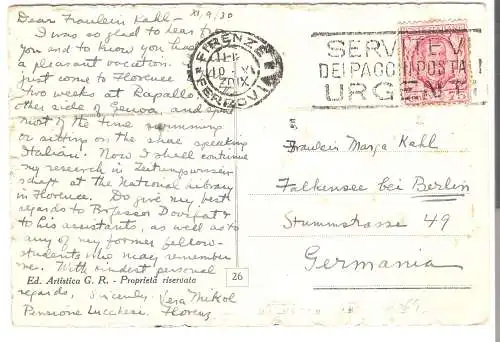 Dear Fräulein Kahl – XI/9/30
I was so glad to hear from
you and to know you had
a pleasant vacation. I have
just come to Florence
two weeks at Rapallo,
other side of Genoa, and spent
most of the time swimming
or sitting on the shore speaking
Italian. Now I shall continue
my research in Zeitungswissen-
schaft at the National Library
in Florence. Do give my best
regards to Professor Dovifat &
to his assistants, as well as to
any of my former fellow-
students who may remember
me. With kindest personal
regards, Sincerely, Vera Mikol
Pensione Lucchesi. Florenz
Ed. Artistica G. R. - Proprietà riservata
26
FIRENZE
FERROVIA
SERVITEVI
DEI PACCHI POSTALI
URGENTI
75
Fräulein Marga Kahl
Falkensee bei Berlin
Stummstrasse 49
Germania